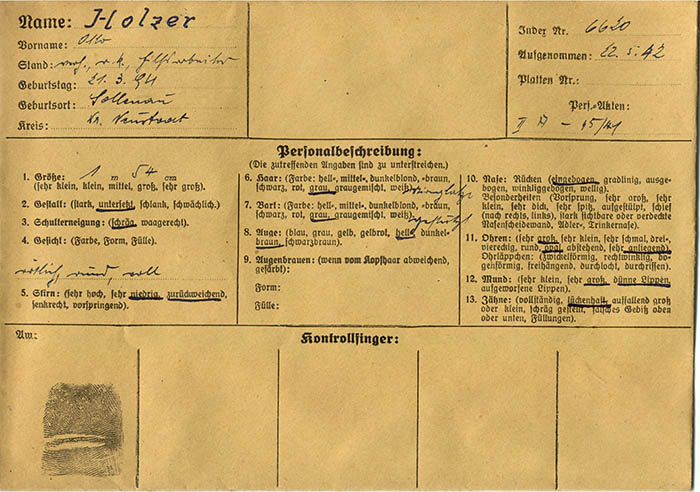 Name: Holzer
Vorname: Otto
Stand: verh., r. k., Hilfsarbeiter
Geburtstag: 21. 3. 94
Geburtsort: Sollenau
Kreis: Wr. Neustadt
Index Nr. 6620
Aufgenommen: 22. 5. 42
Platten Nr.:
Pers.-Akten:
II A – 45/41
Personalbeschreibung:
(Die zutreffenden Angaben sind zu unterstreichen.)
1. Größe: 1 m 54 cm
(sehr klein, klein, mittel, groß, sehr groß).
2. Gestalt: (stark, untersetzt, schlank, schwächlich.)
3. Schulterneigung: (schräg, waagerecht).
4. Gesicht: (Farbe, Form, Fülle).
rötlich rund, voll
5. Stirn: (sehr hoch, sehr niedrig, zurückweichend,
senkrecht, vorspringend).
6. Haar: (Farbe: hell-, mittel-, dunkelblond, -braun,
schwarz, rot, grau, graugemischt, weiß)
7. Bart: (Farbe: hell-, mittel-, dunkelblond, -braun,
schwarz, rot, grau, graugemischt, weiß) gestutzt
8. Auge: (blau, grau, gelb, gelbrot, hell-, dunkel-
braun, schwarzbraun).
9. Augenbrauen: (wenn vom Kopfhaar abweichend,
gefärbt):
Form:
Fülle:
10. Nase: Rücken (eingebogen, gradlinig, ausge-
bogen, winkliggebogen, wellig).
Besonderheiten (Vorsprung, sehr groß, sehr
klein, sehr dick, sehr spitz, aufgestülpt, schief
(nach rechts, links), stark sichtbare oder verdeckte
Nasenscheidewand, Adler-, Trinkernase).
11. Ohren: (sehr groß, sehr klein, sehr schmal, drei-,
viereckig, rund, oval, abstehend, sehr anliegend).
Ohrläppchen: (zwickelförmig, rechtwinklig, bo-
genförmig, freihängend, durchlocht, durchrissen).
12. Mund: (sehr klein, sehr groß, dünne Lippen,
aufgeworfene Lippen).
13. Zähne: (vollständig, lückenhaft, auffallend groß
oder klein, schräg gestellt, falsches Gebiß oben
oder unten, Füllungen).
Am:
Kontrollfinger: